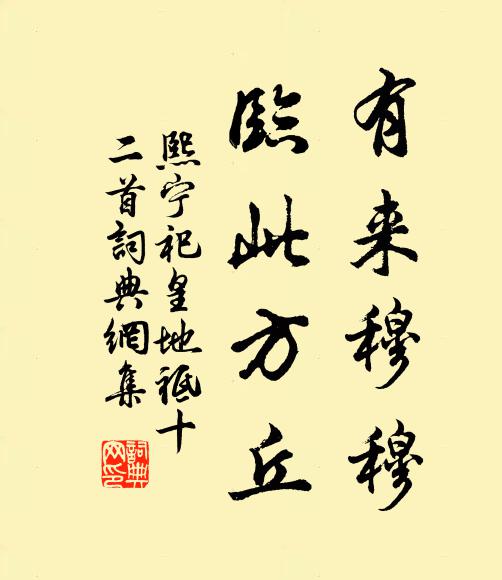 有来穆穆
臨此方丘
熙宁祀皇地祗十
二首詞典網集
詞典
网印